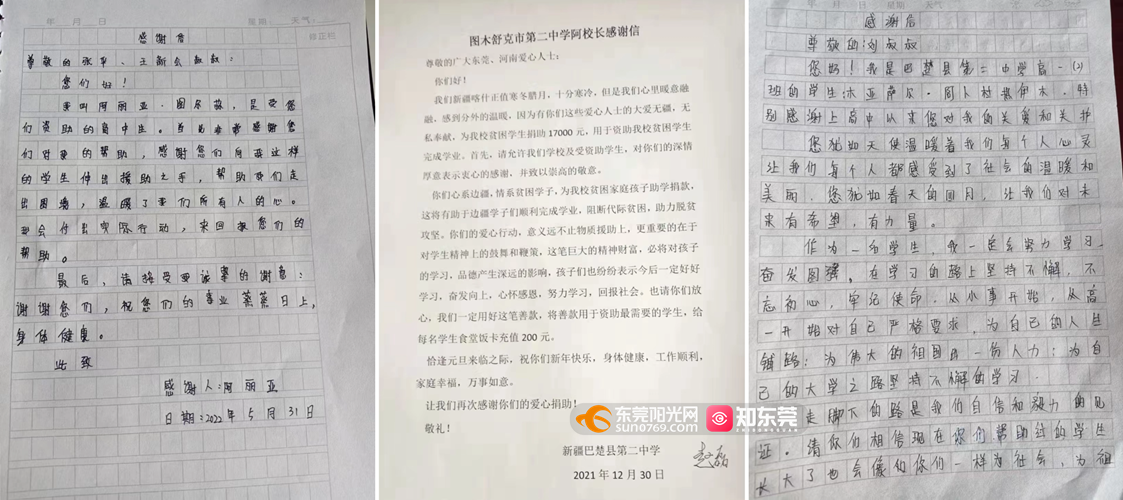 年 月 日 星期: 天气:
感谢信
尊敬的张平、王新会叔叔:
您们好!
我叫阿丽亚·图尔荪,是受您
们资助的高中生。首先非常感谢您
们对我的帮助,感谢您们向我这样
的学生伸出援助之手,帮助我们走
出困境,温暖了我们所有人的心。
我会付出实际行动,来回报您们的
帮助。
最后,请接受我诚挚的谢意:
谢谢您们,祝您们的事业蒸蒸日上,
身体健康。
此致
感谢人:阿丽亚
日期:2022年5月31日
图木舒克市第二中学阿校长感谢信
尊敬的广大东莞、河南爱心人士:
你们好!
我们新疆喀什正值寒冬腊月,十分寒冷,但是我们心里暖意融
融,感到分外的温暖,因为有你们这些爱心人士的大爱无疆,无
私奉献,为我校贫困学生捐助17000元,用于资助我校贫困学生
完成学业。首先,请允许我们学校及受资助学生,对你们的深情
厚意表示衷心的感谢,并致以崇高的敬意。
你们心系边疆,情系贫困学子,为我校贫困家庭孩子助学捐款,
这将有助于边疆学子们顺利完成学业,阻断代际贫困,助力脱贫
攻坚。你们的爱心行动,意义远不止物质援助上,更重要的在于
对学生精神上的鼓舞和鞭策,这笔巨大的精神财富,必将对孩子
的学习,品德产生深远的影响,孩子们也纷纷表示今后一定好好
学习,奋发向上,心怀感恩,努力学习,回报社会。也请你们放
心,我们一定用好这笔善款,将善款用于资助最需要的学生,给
每名学生食堂饭卡充值200元。
恰逢元旦来临之际,祝你们新年快乐,身体健康,工作顺利,
家庭幸福,万事如意。
让我们再次感谢你们的爱心捐助!
敬礼!
新疆巴楚县第二中学
2021年12月30日
东莞阳光网 知东莞
sun0769.com
年 月 日 星期
感谢信
尊敬的刘叔叔
您好!我是巴楚县第二中学高一(2)
班的学生:木亚萨尔·阿卜杜热伊木,特
别感谢上高中以来您对我的关爱和关护
您犹如天使温暖着我们每个人心灵
让我们每个人都感受到了社会的温暖和
美丽.您犹如春天的回月,让我们对未
来有希望,有力量。
作为一名学生,我一定会努力学习.
奋发图强,在学习的路上坚持不懈,不
忘初心,牢记使命,从小事开始,从高
一开始对自己严格要求,为自己的人生
铺路:为伟大的祖国出一份人力:为自
己的大学之路坚持不懈的学习.
走脚下的路是我们自信和毅力的见
证。请你们相信现在你们帮助过的学生
长大了也会像你们一样为社会,为祖